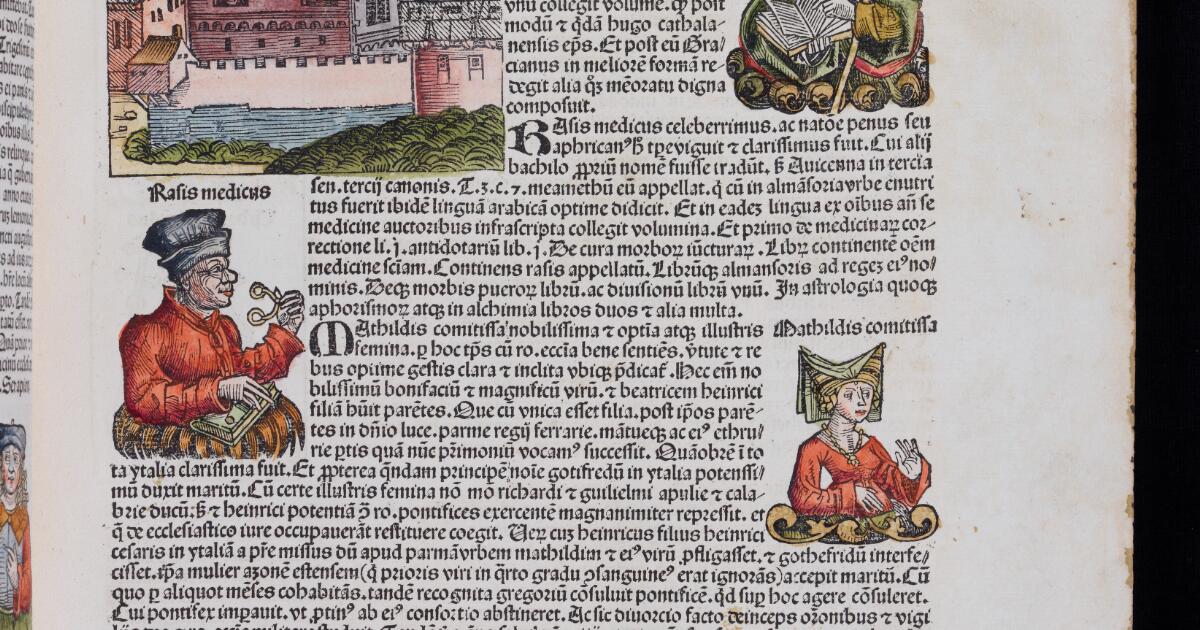 vnū collegit volume. qꝫ post
modū ⁊ qdā hugo cathala-
nensis ep̄s. Et post eū Gra/
cianus in meliorē formā re-
degit alia qꝫ mēoratu digna
composuit.
RAsis medicus celeberrimus. ac natōe penus seu
aphrican⁹ hͦ tꝑe viguit ⁊ clarissimus fuit. Cui alij
bachilo ꝓpriū nomē fuisse tradūt. ß Auicenna in tercia
Rasis medicus
sen. tercij canonis. T. 3. c. 7. meamethū eū appellat. q̇ cū in almāsoria vrbe enutri
tus fuerit ibidē linguā arabicā optime didicit. Et in eadeꝫ lingua ex oībus añ se
medicine auctoribus infrascripta collegit volumina. Et primo de medicinaꝝ cor-
rectione li. j. antidotariū lib. j. De cura morboꝝ iūcturaꝝ. Libꝝ continentē oēm
medicine sciam. Continens rasis appellatū. Librūqꝫ almansoris ad regeꝫ ei⁹ no/
minis. Deqꝫ morbis pueroꝝ librū. ac diuisionū librū vnū. In astrologia quoqꝫ
aphorismoꝝ atqꝫ in alchimia libros duos ⁊ alia multa.
MAthildis comitissa nobilissima ⁊ optīa atqꝫ illustris
Mathildis comitissa
femina. ꝑ hoc tꝑs cū ro. eccīa bene sentiēs. vtute ⁊ re
bus optime gestis clara ⁊ inclita vbiqꝫ p̄dicat̄. Hec eīm no
bilissimū bonifaciū ⁊ magnificū virū. ⁊ beatricem heinrici
filiā hūit parētes. Que cū vnica esset filia. post ip̄os parē-
tes in dn̄io luce. parme regij ferrarie. mātueqꝫ ac ei⁹ ethru/
rie ꝑtis quā nūc pr̄imoniū vocam⁹ successit. Quāobrē ī to
ta ytalia clarissima fuit. Et ꝓpterea q̄ndam principē noīe gotifredū in ytalia potenssi/
mū duxit maritū. Cū certe illustris femina nō mō richardi ⁊ guilielmi apulie ⁊ cala-
brie ducū. ß ⁊ heinrici potentiā ↄ̄ ro. pontifices exercentē magnanimiter repressit. et
q̄ de ecclesiastico iure occupauerāt restituere coegit. Ueꝝ cuꝫ heinricus filius heinrici
cesaris in ytaliā a pr̄e missus dū apud parmā vrbem mathildim ⁊ ei⁹ virū ꝓfligasset. ⁊ gothefridū interfe/
cisset. ip̄a mulier azonē estensem (q̇ prioris viri in q̄rto gradu ↄsanguine⁹ erat ignorās) accepit maritū. Cū
quo ꝑ aliquot mēses cohabitās. tandē recognita gregoriū cōsuluit pontificē. qd suꝑ hoc agere cōsuleret.
Cui pontifex imꝑauit. vt ꝓtin⁹ ab ei⁹ consortio abstineret. Ac sic diuorcio facto deinceps orōnibus ⁊ vigi